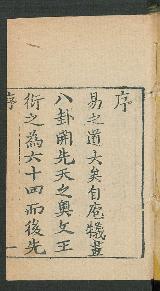 序
易之道大矣自庖犧畫
八卦開先天之奧文王
衍之為六十四而後先
序
一